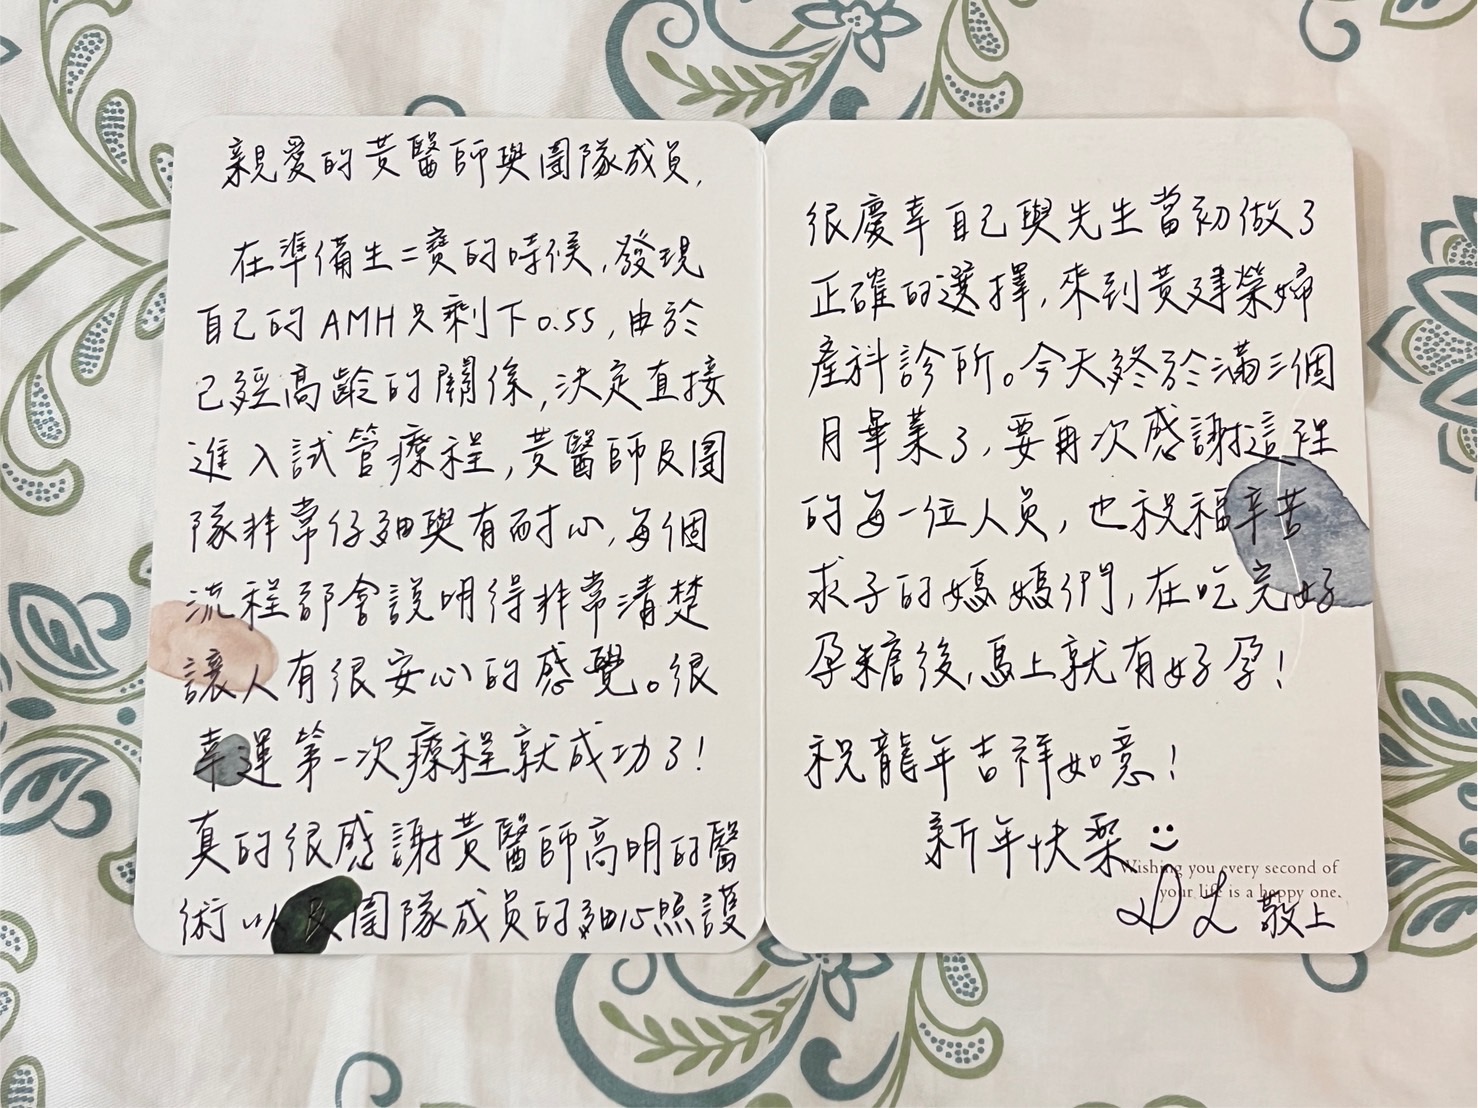 親愛的黃醫師與團隊成員,
在準備生二寶的時候,發現
自己的AMH只剩下0.55,由於
已經高齡的關係,決定直接
進入試管療程,黃醫師及團
隊非常仔細與有耐心,每個
流程都會說明得非常清楚
讓人有很安心的感覺。很
幸運第一次療程就成功了!
真的很感謝黃醫師高明的醫
術以及團隊成員的細心照護
很慶幸自己與先生當初做了
正確的選擇,來到黃建榮婦
產科診所。今天終於滿三個
月畢業了,要再次感謝這裡
的每一位人員,也祝福辛苦
求子的媽媽們,在吃完好
孕糖後,馬上就有好孕!
祝龍年吉祥如意!
新年快樂
Wishing you every second of
your life is a happy one.
DL 敬上